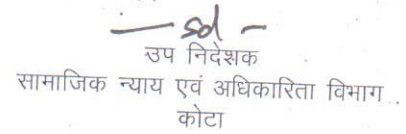 — sd —
उप निदेशक
सामाजिक न्याय एवं अधिकारिता विभाग
कोटा